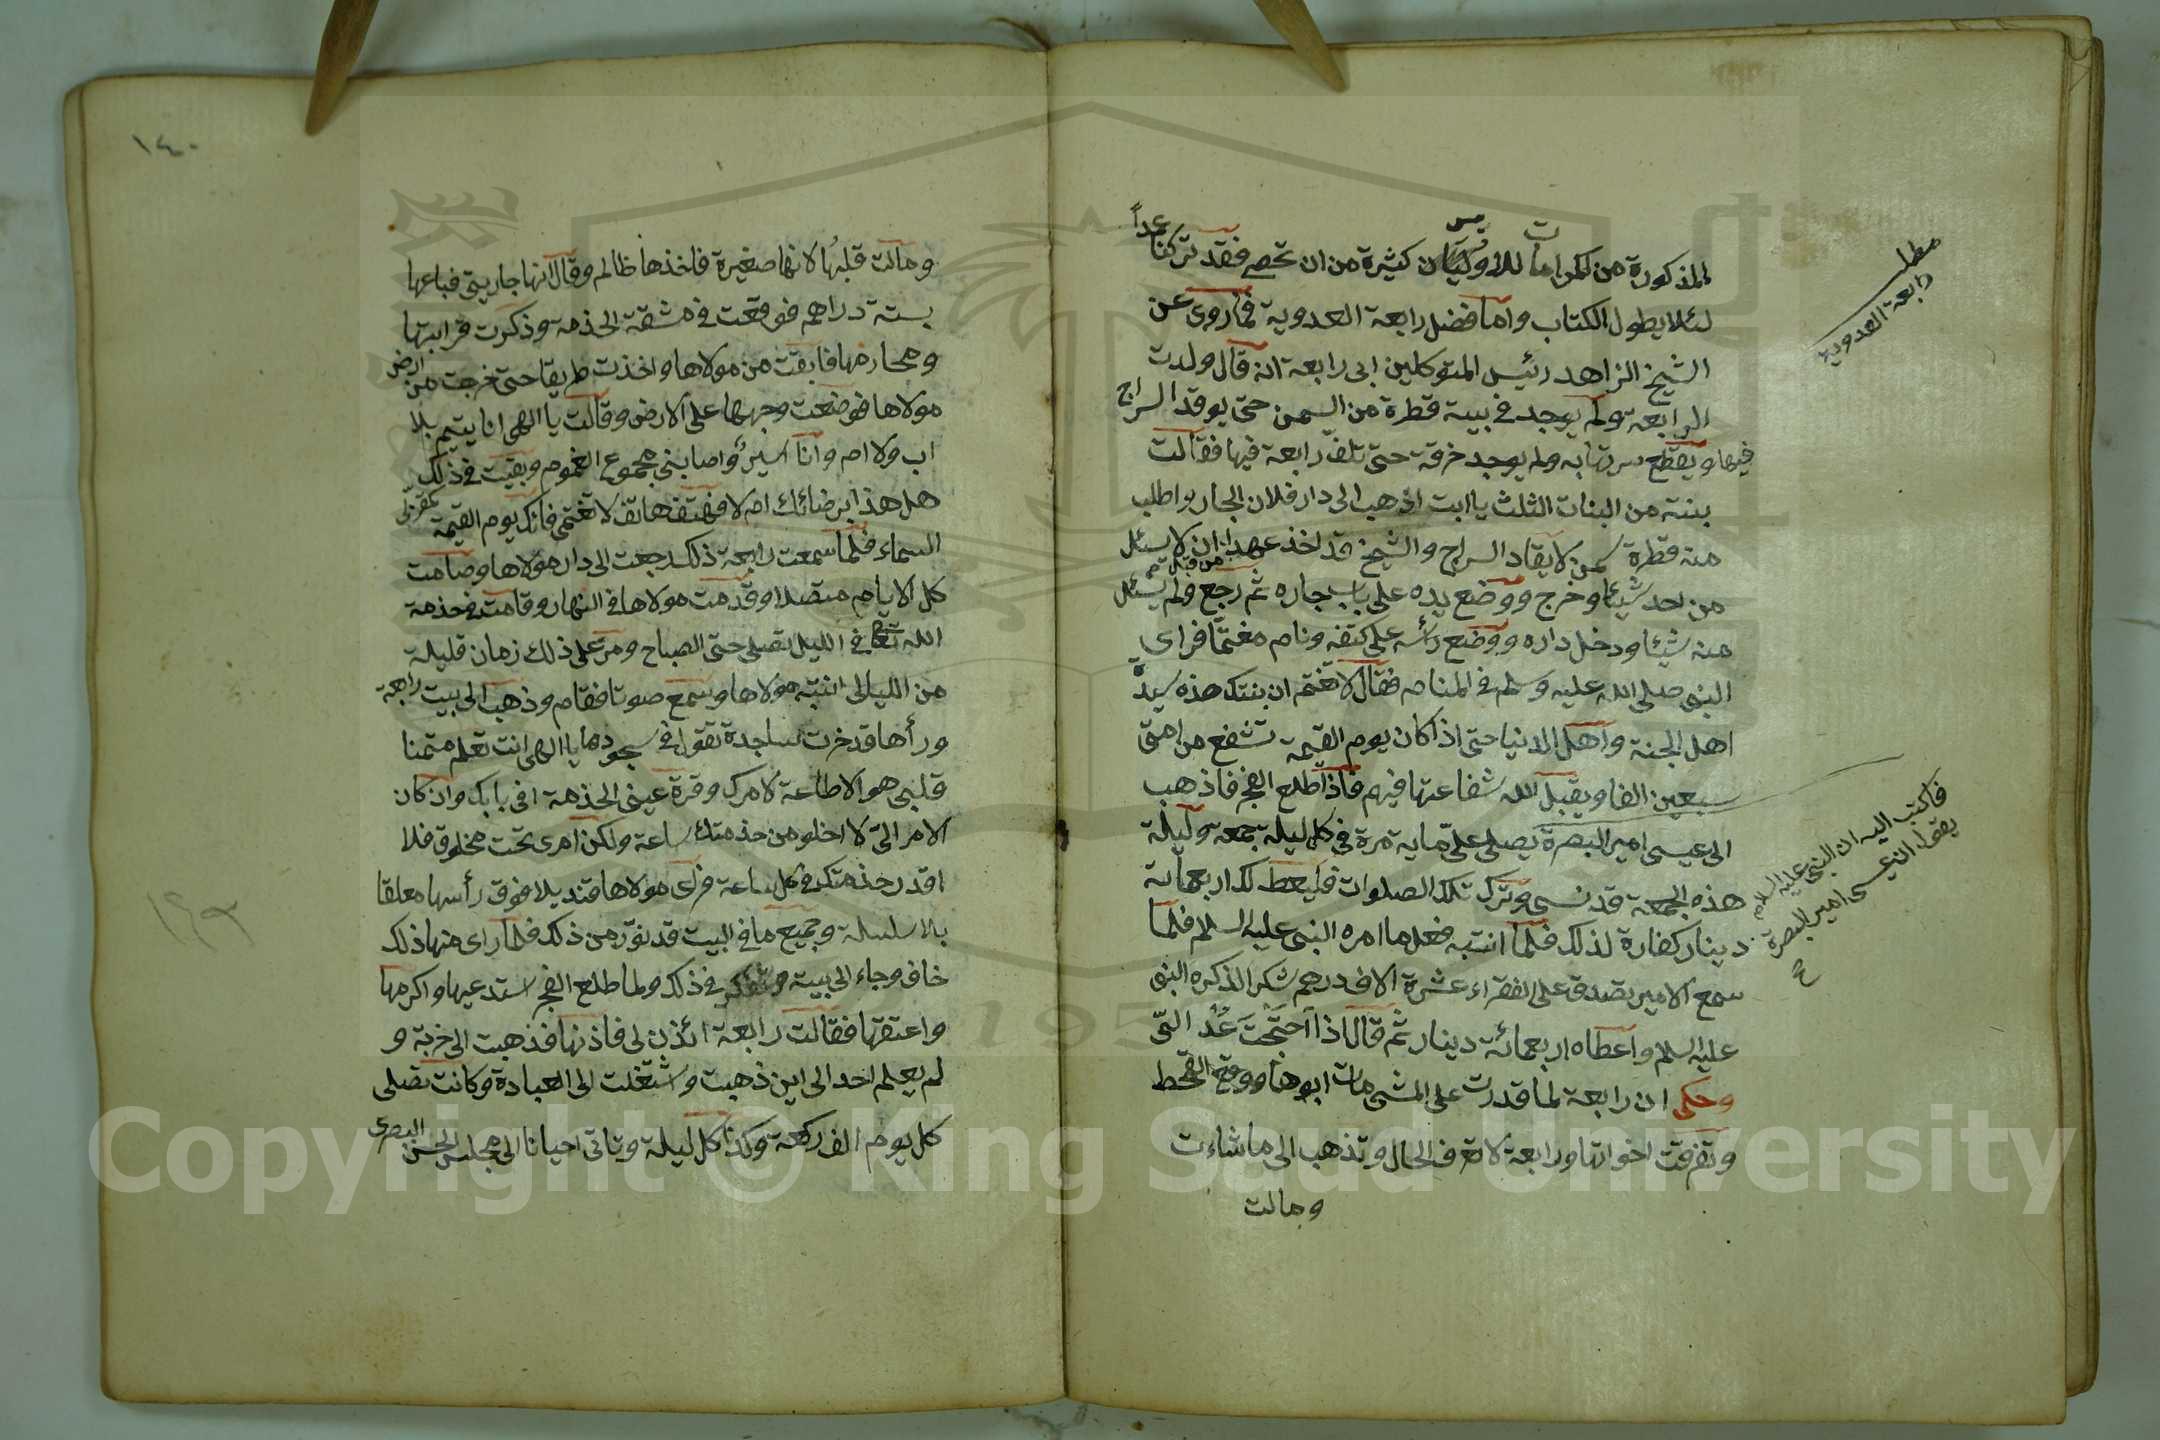 المذكورة من كرامات للاوليآن كثيرة من ان تحصى فقد تركنا عداً
لئلا يطول الكتاب واما فضل رابعة العدوية فما روى عن
الشيخ الزاهد رئيس المتوكلين ابى رابعة انه قال ولدت
الرابعة ولم يوجد فى بيته قطرة من السمن حتى يوقد السراج
فيها ويقطع سرتها به ولم يوجد خرقة حتى تلف رابعة فيها فقالت
بنته من البنات الثلث يا ابت اذهب الى دار فلان الجار واطلب
منه قطرة سمن لايقاد السراج والشيخ قد اخذ عهدا ان لا يسئل
من احد شيئا وخرج ووضع يده على باب جاره ثم رجع ولم يسئل
منه شيئا ودخل داره ووضع رأسه على كتفه ونام مغتما فراى
النبى صلى الله عليه وسلم فى المنام فقال لا تغتم ان بنتك هذه سيدة
اهل الجنة واهل الدنيا حتى اذا كان يوم القيمة تشفع من امتى
سبعين الفا ويقبل الله شفاعتها فيهم فاذا طلع الفجر فاذهب
الى عيسى امير البصرة يصلى على مايه مرة فى كل ليلة جمعة وليلة
هذه الجمعة قد نسى وترك تلك الصلوات فليعط لك اربعمائة
دينار كفارة لذلك فلما انتبه فعل ما امره النبى عليه السلام فلما
سمع الامير تصدق على الفقراء عشرة الاف درهم شكرا لذكره النبى
عليه السلام واعطاه اربعمائة دينار ثم قال اذا احتجت عد الىّ
وحكى ان رابعة لما قدرت على المشى مات ابوها ووقع القحط
وتفرقت اخواتها ورابعة لا تعرف الحال وتذهب الى ما شاءت
ومالت
مطلب
رابعة العدوية
فاكتب اليه ان النبى عليه السلام
يقول ان عيسى امير البصرة
١٤٠
ومالت قلبها لانها صغيرة فاخذها ظالم وقال انها جاريتى فباعها
بستة دراهم فوقعت فى مشقة الخدمة وذكرت قرابتها
ومحارمها فابقت من مولاها واخذت طريقا حتى خرجت من ارض
مولاها فوضعت وجهها على الارض وقالت يا الهى انا يتيم بلا
اب ولا ام وانا اسير واصابنى مجموع الغموم وبقيت فى ذلك
هل هذا برضائك ام لا فهتف هاتف لا تغتمى فانك يوم القيمة تقربى
السماء فلما سمعت رابعة ذلك رجعت الى دار مولاها وصامت
كل الايام متصلا وقدمت مولاها فى النهار وقامت فى خدمة
الله تعالى فى الليل تصلى حتى الصباح ومر على ذلك زمان قليلة
من الليالى انتبه مولاها وسمع صوتا فقام وذهب الى بيت رابعة
ورأها قد خرت ساجدة تقول فى سجودها يا الهى انت تعلم متمنا
قلبى هو الاطاعة لامرك وقرة عينى الخدمة فى بابك وان كان
الامر الىّ لا اخلو من خدمتك ساعة ولكن امرى تحت مخلوق فلا
اقدر خدمتك فى كل ساعة فراى مولاها قنديلا فوق رأسها معلقا
بلا سلسلة وجميع ما فى البيت قد نوّر من ذلك فلما راى منها ذلك
خاف وجاء الى بيته وتفكر فى ذلك ولما طلع الفجر استدعيها واكرمها
واعتقها فقالت رابعة ائذن لى فاذنها فذهبت الى خربة و
لم يعلم احد الى اين ذهبت واشتغلت الى العبادة وكانت تصلى
كل يوم الف ركعة وكذا كل ليلة وتاتى احيانا الى مجلس الحسن البصرى
Copyright © King Saud University